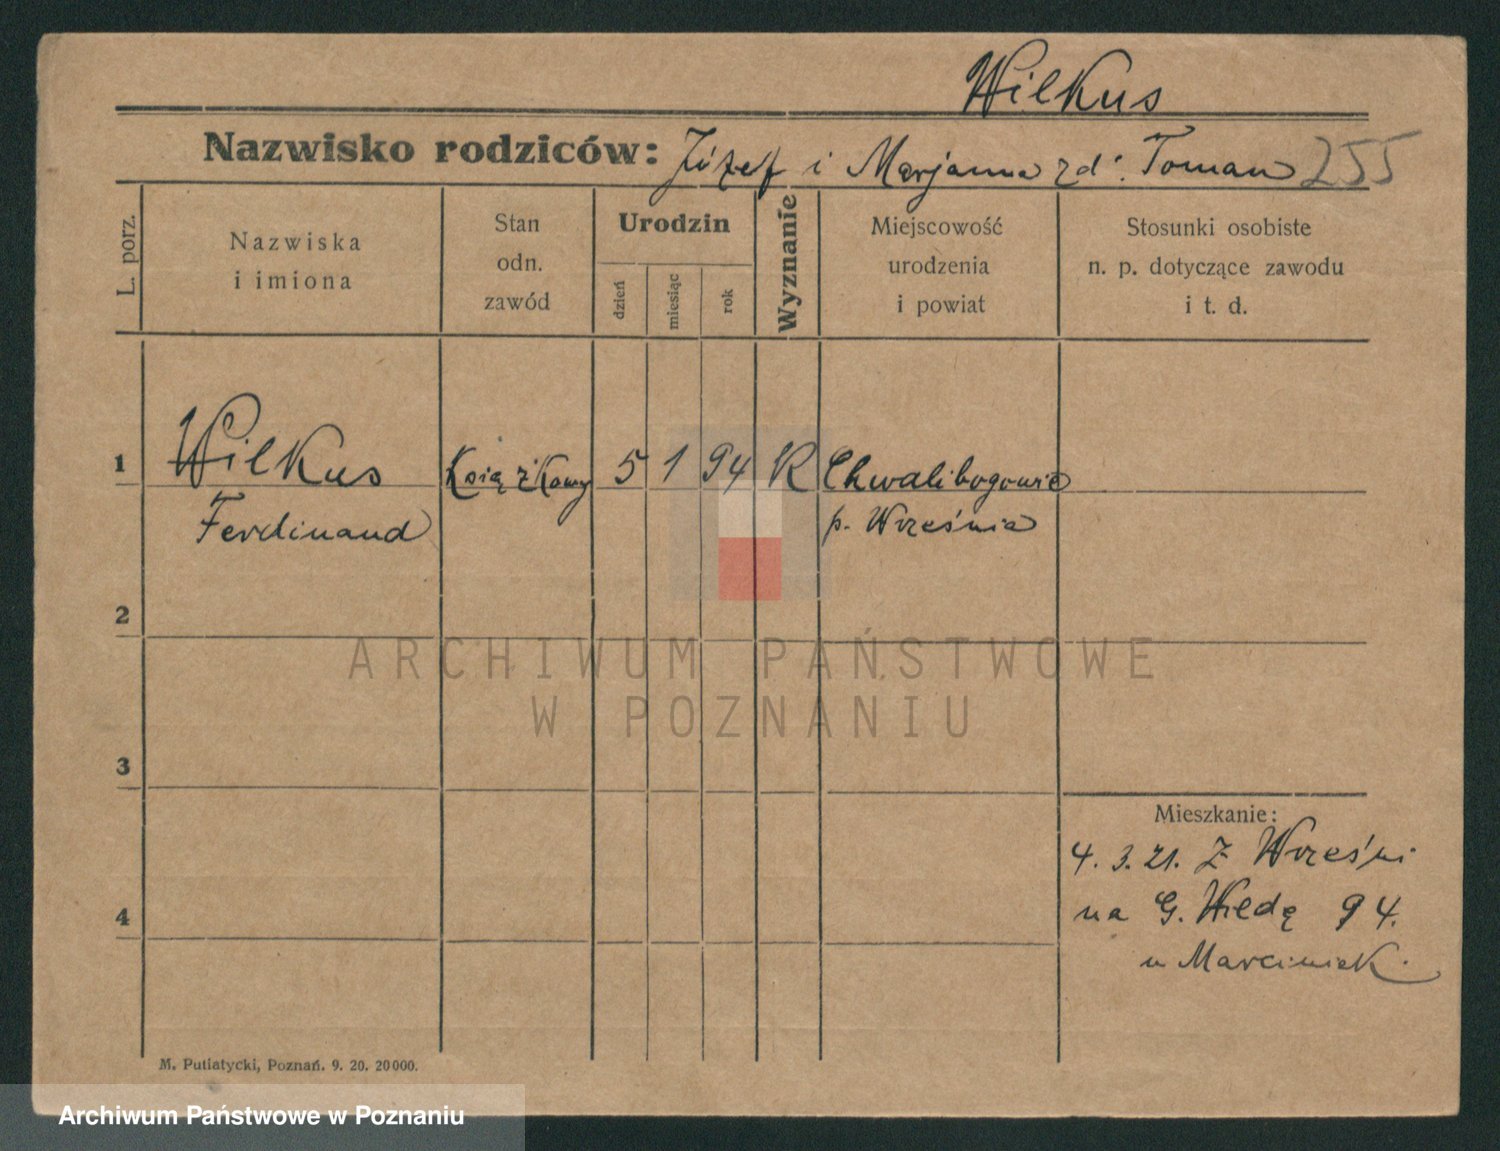 Wilkus
Nazwisko rodziców: Józef i Marjanna zd. Toman 255
L. porz.
Nazwiska
i imiona
Stan
odn.
zawód
Urodzin
dzień
miesiąc
rok
Wyznanie
Miejscowość
urodzenia
i powiat
Stosunki osobiste
n. p. dotyczące zawodu
i t. d.
1 Wilkus Książkowy 5 1 94 K Chwalibogowie
Ferdinand p. Września
2
ARCHIWUM PAŃSTWOWE
W POZNANIU
3
Mieszkanie:
4. 3. 21. Z Wrześni
4 na G. Wildę 94.
u Marciniak.
M. Putiatycki, Poznań. 9. 20. 20000.
Archiwum Państwowe w Poznaniu